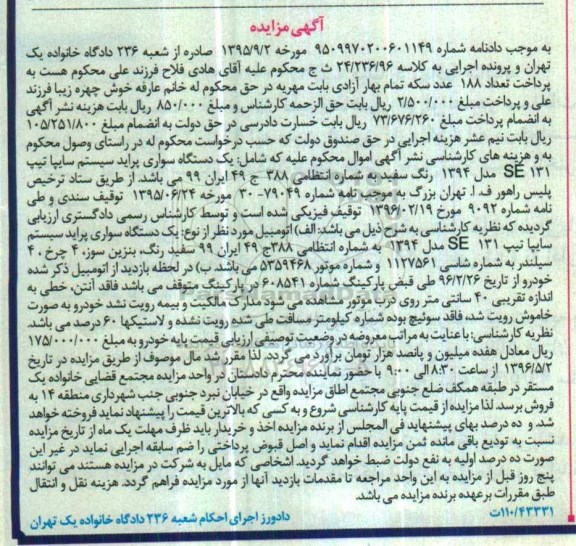 آگهی مزایده
به موجب دادنامه شماره ۹۵۰۹۹۷۰۲۰۰۶۰۱۱۴۹ مورخه ۱۳۹۵/۹/۲ صادره از شعبه ۲۳۶ دادگاه خانواده یک
تهران و پرونده اجرایی به کلاسه ۲۴/۲۳۶/۹۶ ث ج محکوم علیه آقای هادی فلاح فرزند علی محکوم هست به
پرداخت تعداد ۱۸۸ عدد سکه تمام بهار آزادی بابت مهریه در حق محکوم له خانم عارفه خوش چهره زیبا فرزند
علی و پرداخت مبلغ ۲/۵۰۰/۰۰۰ ریال بابت حق الزحمه کارشناس و مبلغ ۸۵۰/۰۰۰ ریال بابت هزینه نشر آگهی
به انضمام پرداخت مبلغ ۷۳/۶۷۶/۲۶۰ ریال بابت خسارت دادرسی در حق دولت به انضمام مبلغ ۱۰۵/۲۵۱/۸۰۰
ریال بابت نیم عشر هزینه اجرایی در حق صندوق دولت که حسب درخواست محکوم له در راستای وصول محکوم
به و هزینه های کارشناسی نشر آگهی اموال محکوم علیه که شامل: یک دستگاه سواری پراید سیستم سایپا تیپ
SE ۱۳۱ مدل ۱۳۹۴ رنگ سفید به شماره انتظامی ۳۸۸ ج ۴۹ ایران ۹۹ می باشد. از طریق ستاد ترخیص
پلیس راهور ف. ا. تهران بزرگ به موجب نامه شماره ۷۹۰۴۹-۳۰ مورخه ۱۳۹۵/۰۶/۲۴ توقیف سندی و طی
نامه شماره ۹۰۹۲ مورخ ۱۳۹۶/۰۲/۱۹ توقیف فیزیکی شده است و توسط کارشناس رسمی دادگستری ارزیابی
گردیده که نظریه کارشناسی به شرح ذیل می باشد: الف) اتومبیل مورد نظر از نوع: یک دستگاه سواری پراید سیستم
سایپا تیپ ۱۳۱ SE مدل ۱۳۹۴ به شماره انتظامی ۳۸۸ج ۴۹ ایران ۹۹ سفید رنگ، بنزین سوز، ۴ چرخ، ۴
سیلندر به شماره شاسی ۱۱۳۷۵۶۱ و شماره موتور ۵۳۵۹۴۶۸ می باشد. ب) در لحظه بازدید از اتومبیل ذکر شده
خودرو از تاریخ ۹۶/۲/۲۶ طی قبض پارکینگ شماره ۶۰۸۵۴۱ در پارکینگ متوقف می باشد فاقد آنتن، خطی به
اندازه تقریبی ۴۰ سانتی متر روی درب موتور مشاهده می شود مدارک مالکیت و بیمه رویت نشد خودرو به صورت
خاموش رویت شد، فاقد سوئیچ بوده شماره کیلومتر مسافت طی شده رویت نشده و لاستیکها ۶۰ درصد می باشد.
نظریه کارشناسی: با عنایت به مراتب معروضه در وضعیت توصیفی ارزیابی قیمت پایه خودرو به مبلغ ۱۷۵/۰۰۰/۰۰۰
ریال معادل هفده میلیون و پانصد هزار تومان برآورد می گردد. لذا مقرر شد مال موصوف از طریق مزایده در تاریخ
۱۳۹۶/۵/۲ از ساعت ۸:۳۰ الی ۹:۰۰ با حضور نماینده محترم دادستان در واحد مزایده مجتمع قضایی خانواده یک
مستقر در طبقه همکف ضلع جنوبی مجتمع اطاق مزایده واقع در خیابان نبرد جنوبی جنب شهرداری منطقه ۱۴ به
فروش برسد. لذا مزایده از قیمت پایه کارشناسی شروع و به کسی که بالاترین قیمت را پیشنهاد نماید فروخته خواهد
شد. و ده درصد بهای پیشنهاید فی المجلس از برنده مزایده اخذ و خریدار باید ظرف مهلت یک ماه از تاریخ مزایده
نسبت به تودیع باقی مانده ثمن مزایده اقدام نماید و اصل قبوض پرداختی را ضم سابقه اجرایی نماید در غیر این
صورت ده درصد اولیه به نفع دولت ضبط خواهد گردید. اشخاصی که مایل به شرکت در مزایده هستند می توانند
پنج روز قبل از مزایده به این واحد مراجعه تا مقدمات بازدید آنها از مورد مزایده فراهم گردد. هزینه نقل و انتقال
طبق مقررات بر عهده برنده مزایده می باشد.
۱۱۰/۴۳۳۳۱ت دادورز اجرای احکام شعبه ۲۳۶ دادگاه خانواده یک تهران